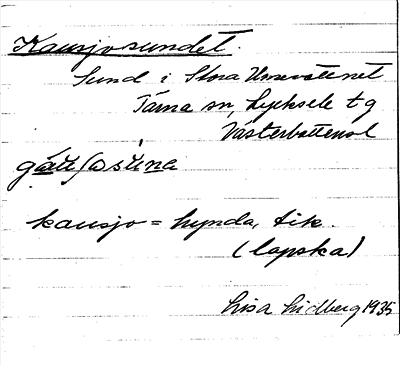 Kausjosundet.
Sund i Stora Umevattnet
Tärna sn, Lycksele tg
Västerbottens l
kausjo = hynda, tik.
(lapska)
Lisa Lidberg 1935